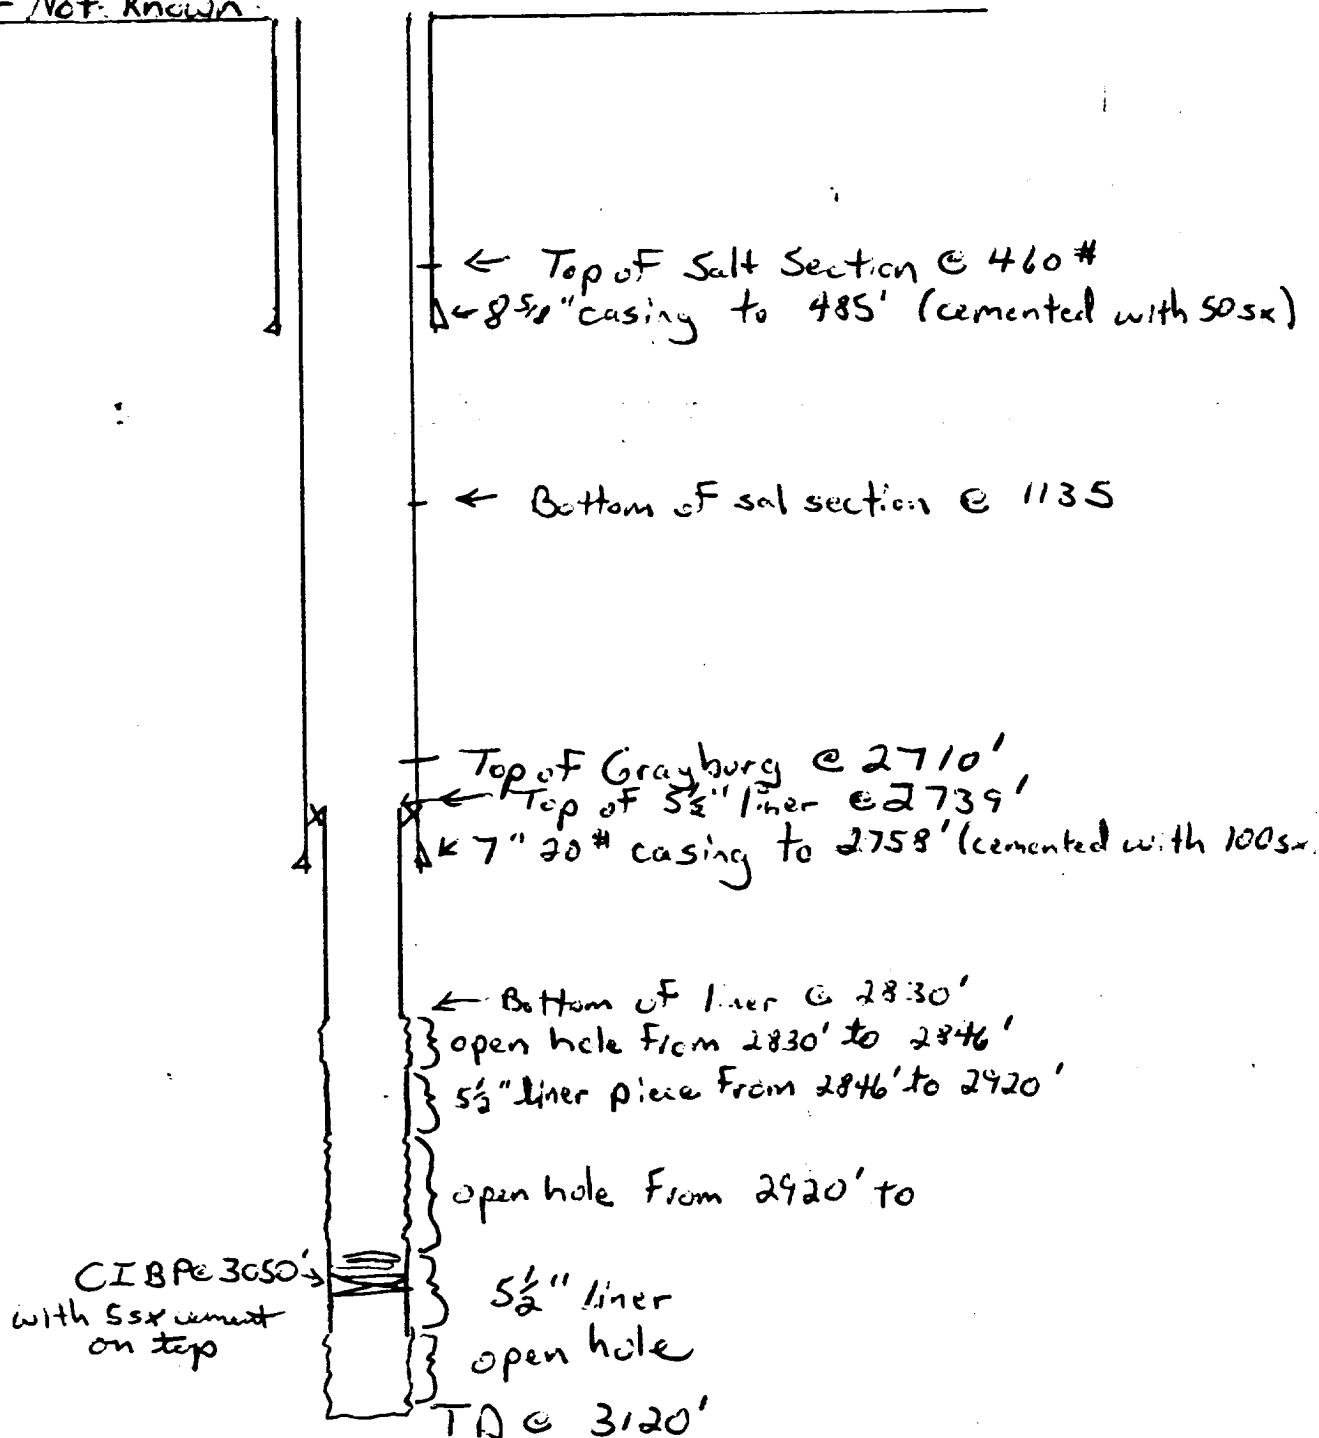 - Not Known
← Top of Salt Section @ 460#
← 8 5/8" casing to 485' (cemented with 50sx)
← Bottom of sal section @ 1135
Top of Grayburg @ 2710'
← Top of 5½" liner @ 2739'
← 7" 20# casing to 2758' (cemented with 100sx
← Bottom of liner @ 2830'
open hole From 2830' to 2846'
5½" liner piece From 2846' to 2920'
open hole From 2920' to
CIBP@ 3050'
with 5sx cement
on top
5½" liner
open hole
TD @ 3120'